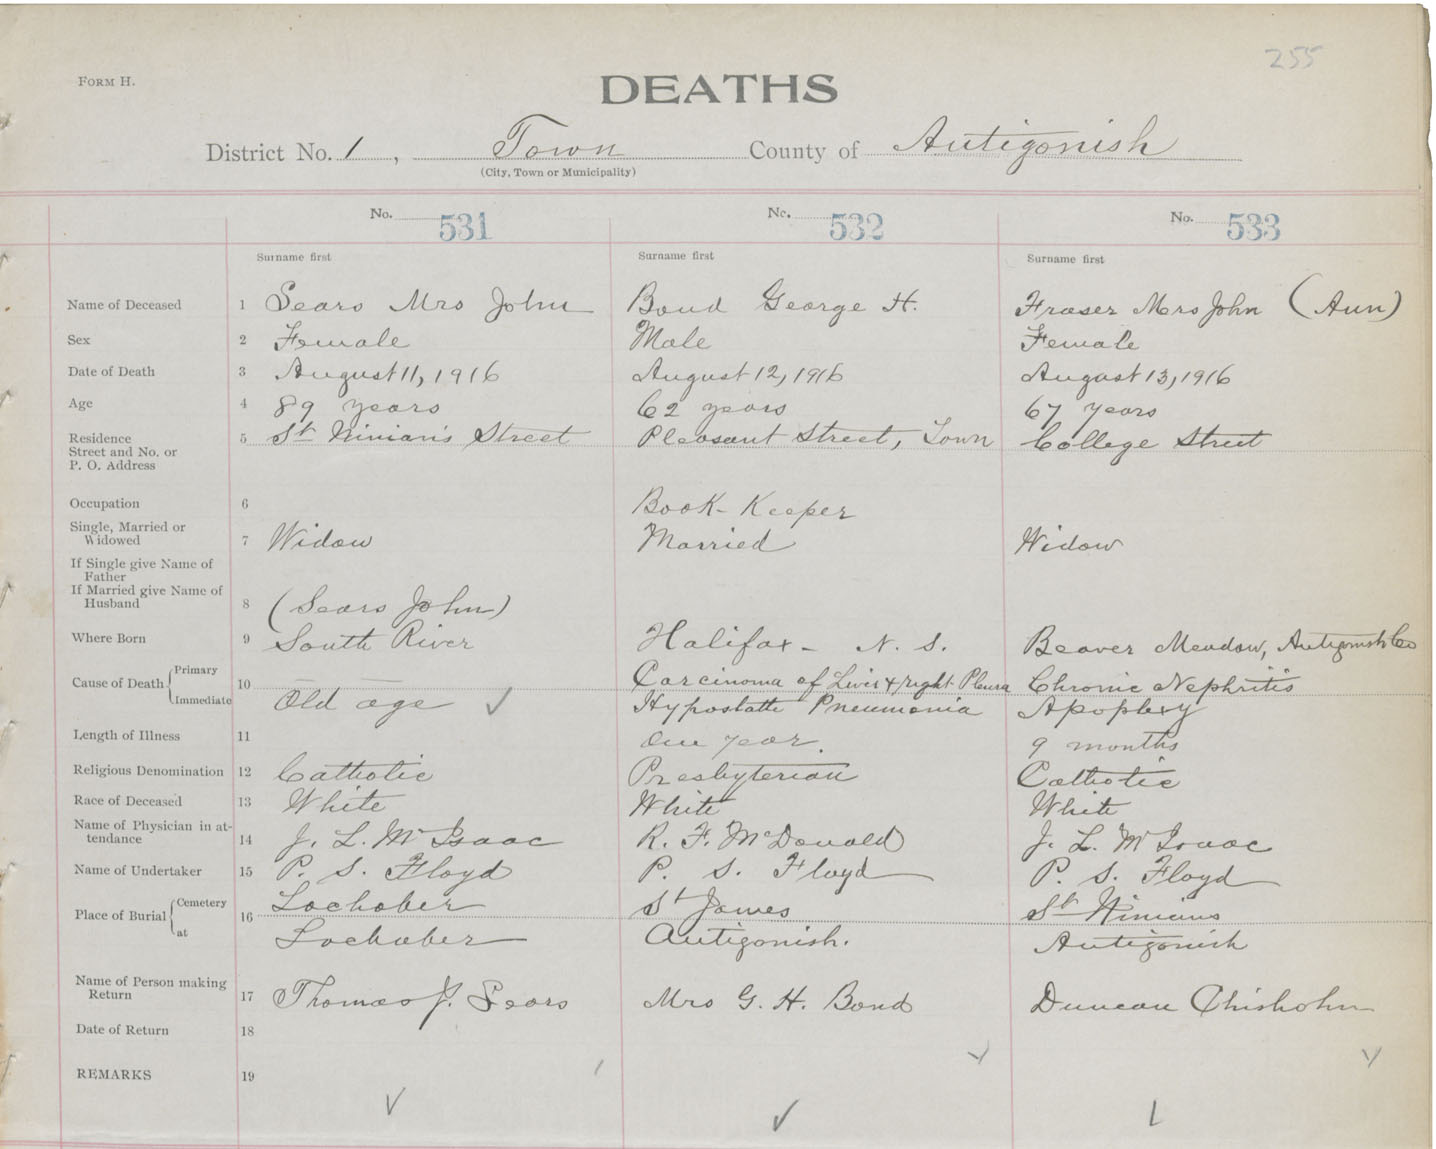 255
FORM H.
DEATHS
District No. 1, Town County of Antigonish
(City, Town or Municipality)
No. 531 No. 532 No. 533
Surname first Surname first Surname first
Name of Deceased 1 Sears Mrs John Bond George H. Fraser Mrs John (Ann)
Sex 2 Female Male Female
Date of Death 3 August 11, 1916 August 12, 1916 August 13, 1916
Age 4 89 years 62 years 67 years
Residence 5 St Ninian's Street Pleasant Street, Town College Street
Street and No. or
P. O. Address
Occupation 6 Book-Keeper
Single, Married or
Widowed 7 Widow Married Widow
If Single give Name of
Father
If Married give Name of
Husband 8 (Sears John)
Where Born 9 South River Halifax - N. S. Beaver Meadow, Antigonish Co
Cause of Death Primary 10 Carcinoma of Liver & right Pleura Chronic Nephritis
Immediate Old age Hypostatic Pneumonia Apoplexy
Length of Illness 11 One year. 9 months
Religious Denomination 12 Catholic Presbyterian Catholic
Race of Deceased 13 White White White
Name of Physician in at-
tendance 14 J. L. McIsaac R. F. McDonald J. L. McIsaac
Name of Undertaker 15 P. S. Floyd P. S. Floyd P. S. Floyd
Place of Burial Cemetery 16 Lochaber St James St Ninians
at Lochaber Antigonish. Antigonish
Name of Person making
Return 17 Thomas J. Sears Mrs G. H. Bond Duncan Chisholm
Date of Return 18
REMARKS 19